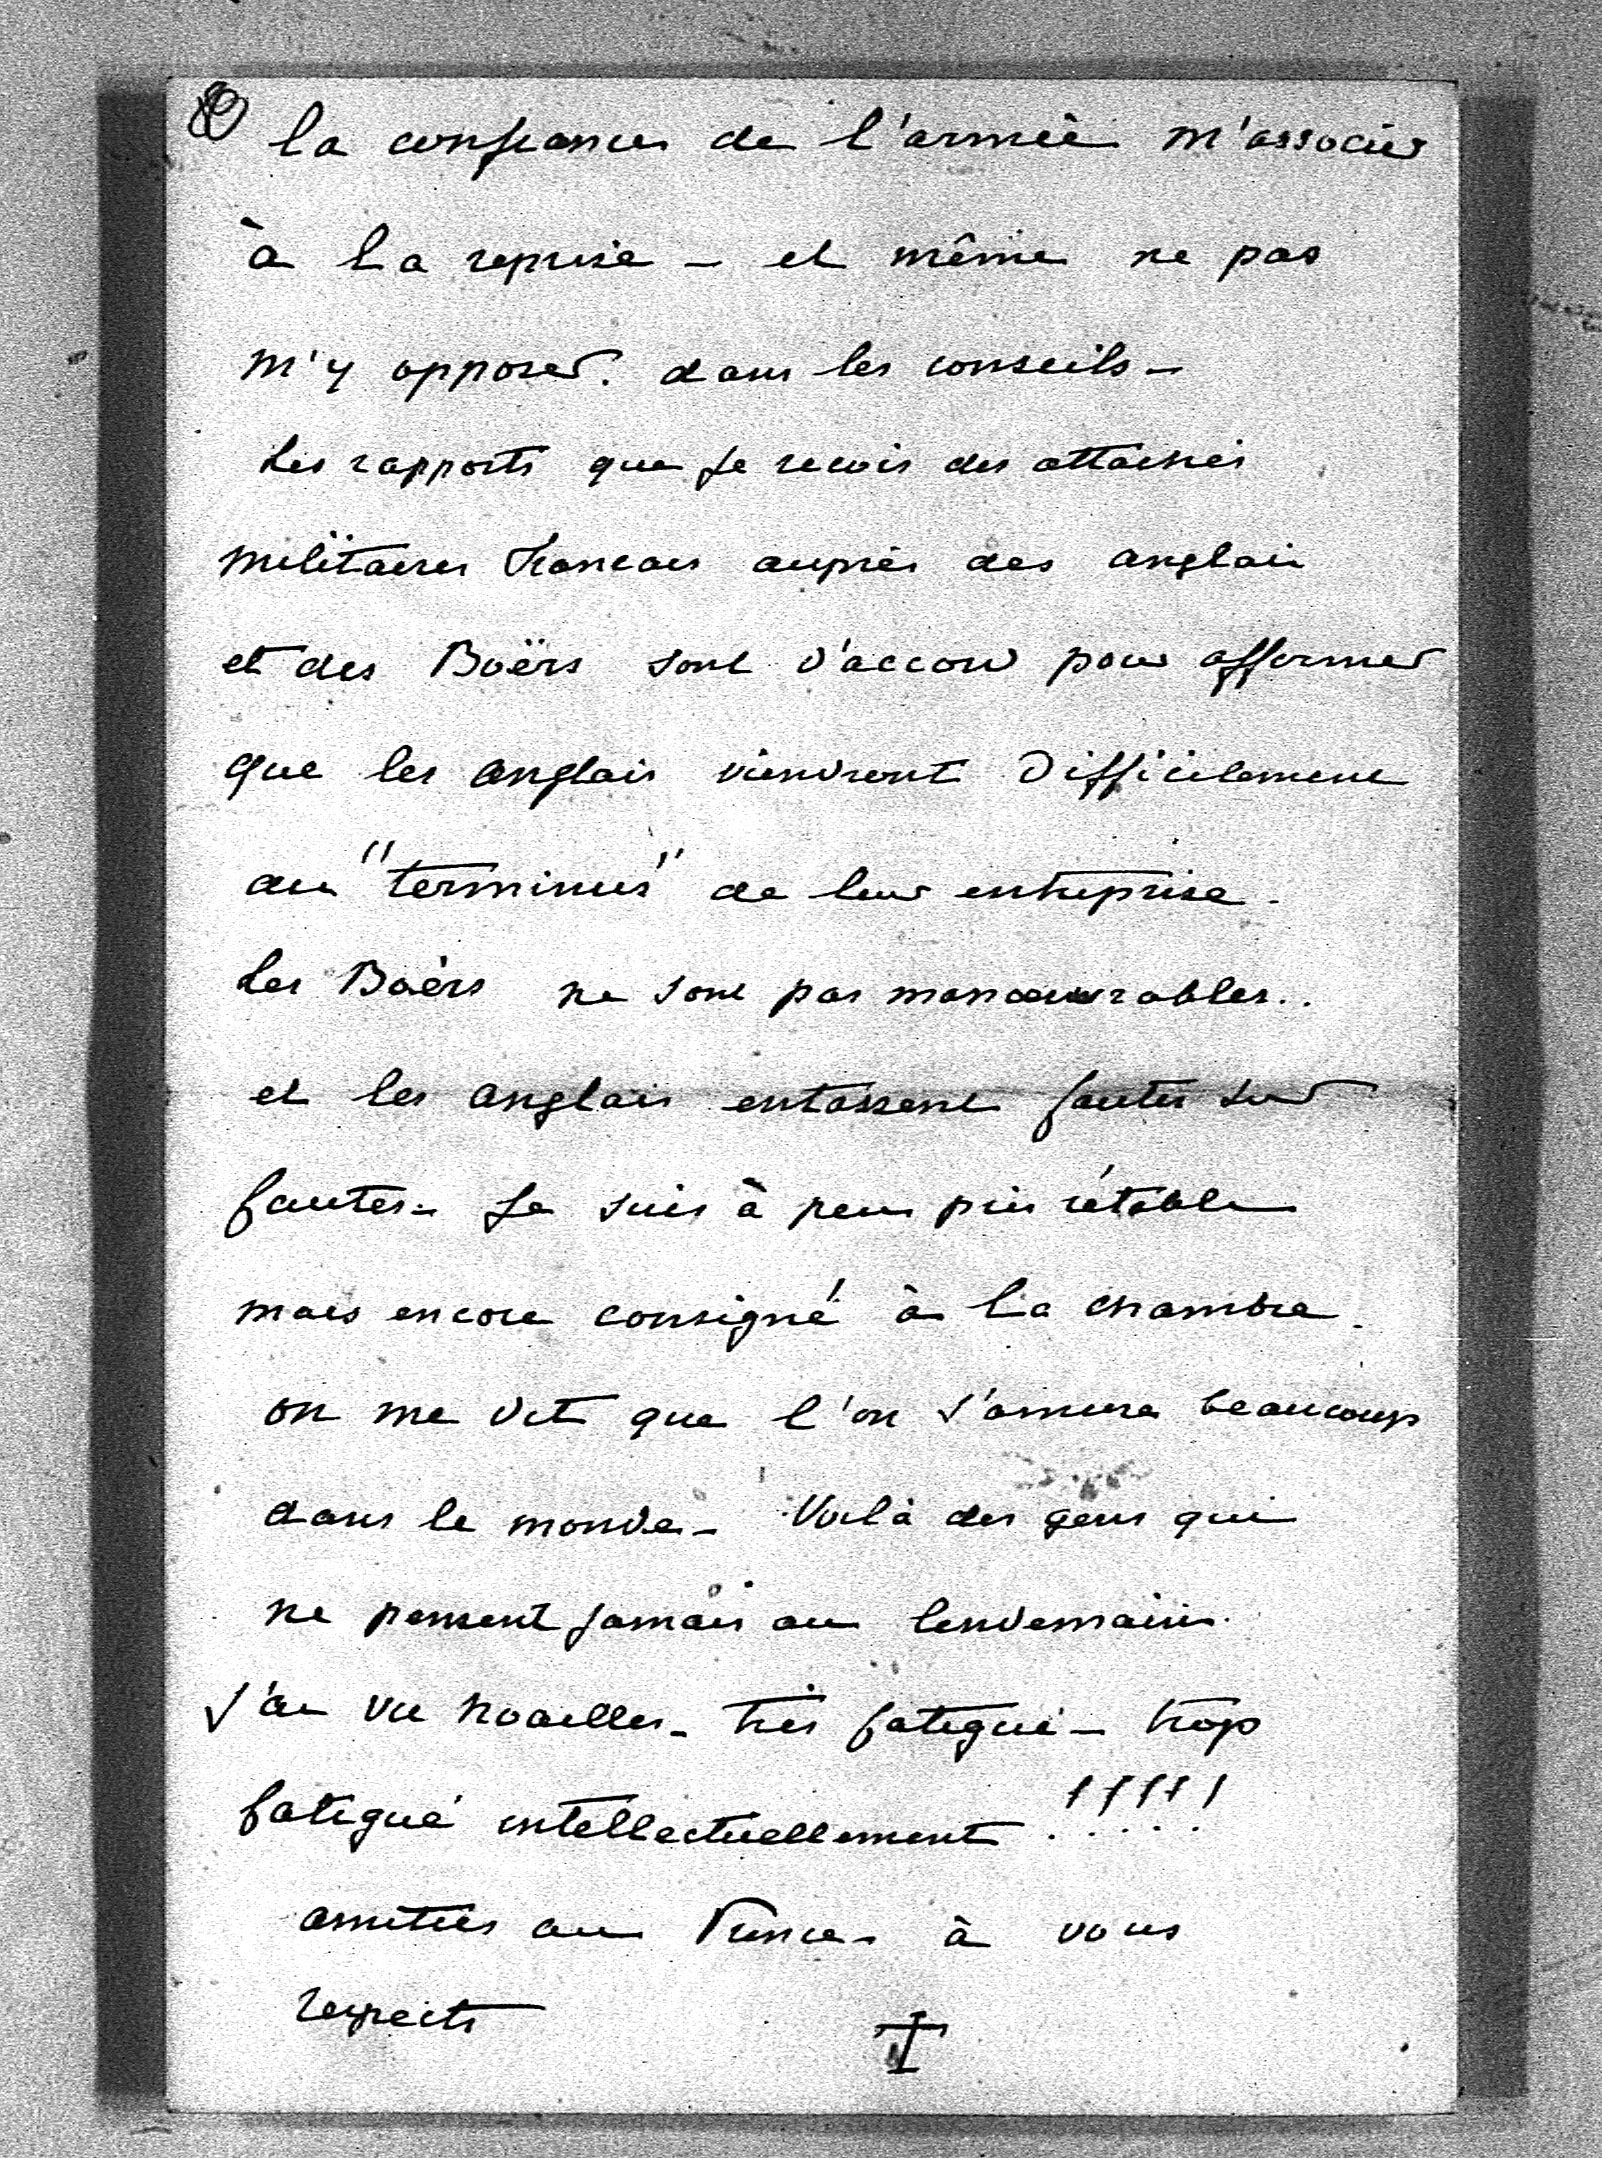 la confiance de l'armée m'associer
à la reprise - et même ne pas
m'y opposer. dans les conseils -
Les rapports que je recois des attachés
militaires Francais auprès des anglais
et des Boërs sont d'accord pour affirmer
que les anglais viendront Difficilement
au "terminus" de leur entreprise.
Les Boërs ne sont pas manoeuvrables..
et les anglais entassent fautes sur
fautes - Je suis à peu près rétabli
mais encore consigné à la chambre.
on me dit que l'on s'amuse beaucoup
dans le monde - Voilà des gens qui
ne pensent jamais au lendemain.
J'ai vu Noailles - très fatigué - trop
fatigué intellectuellement !!!!!
amitiés au Prince - à vous
respects